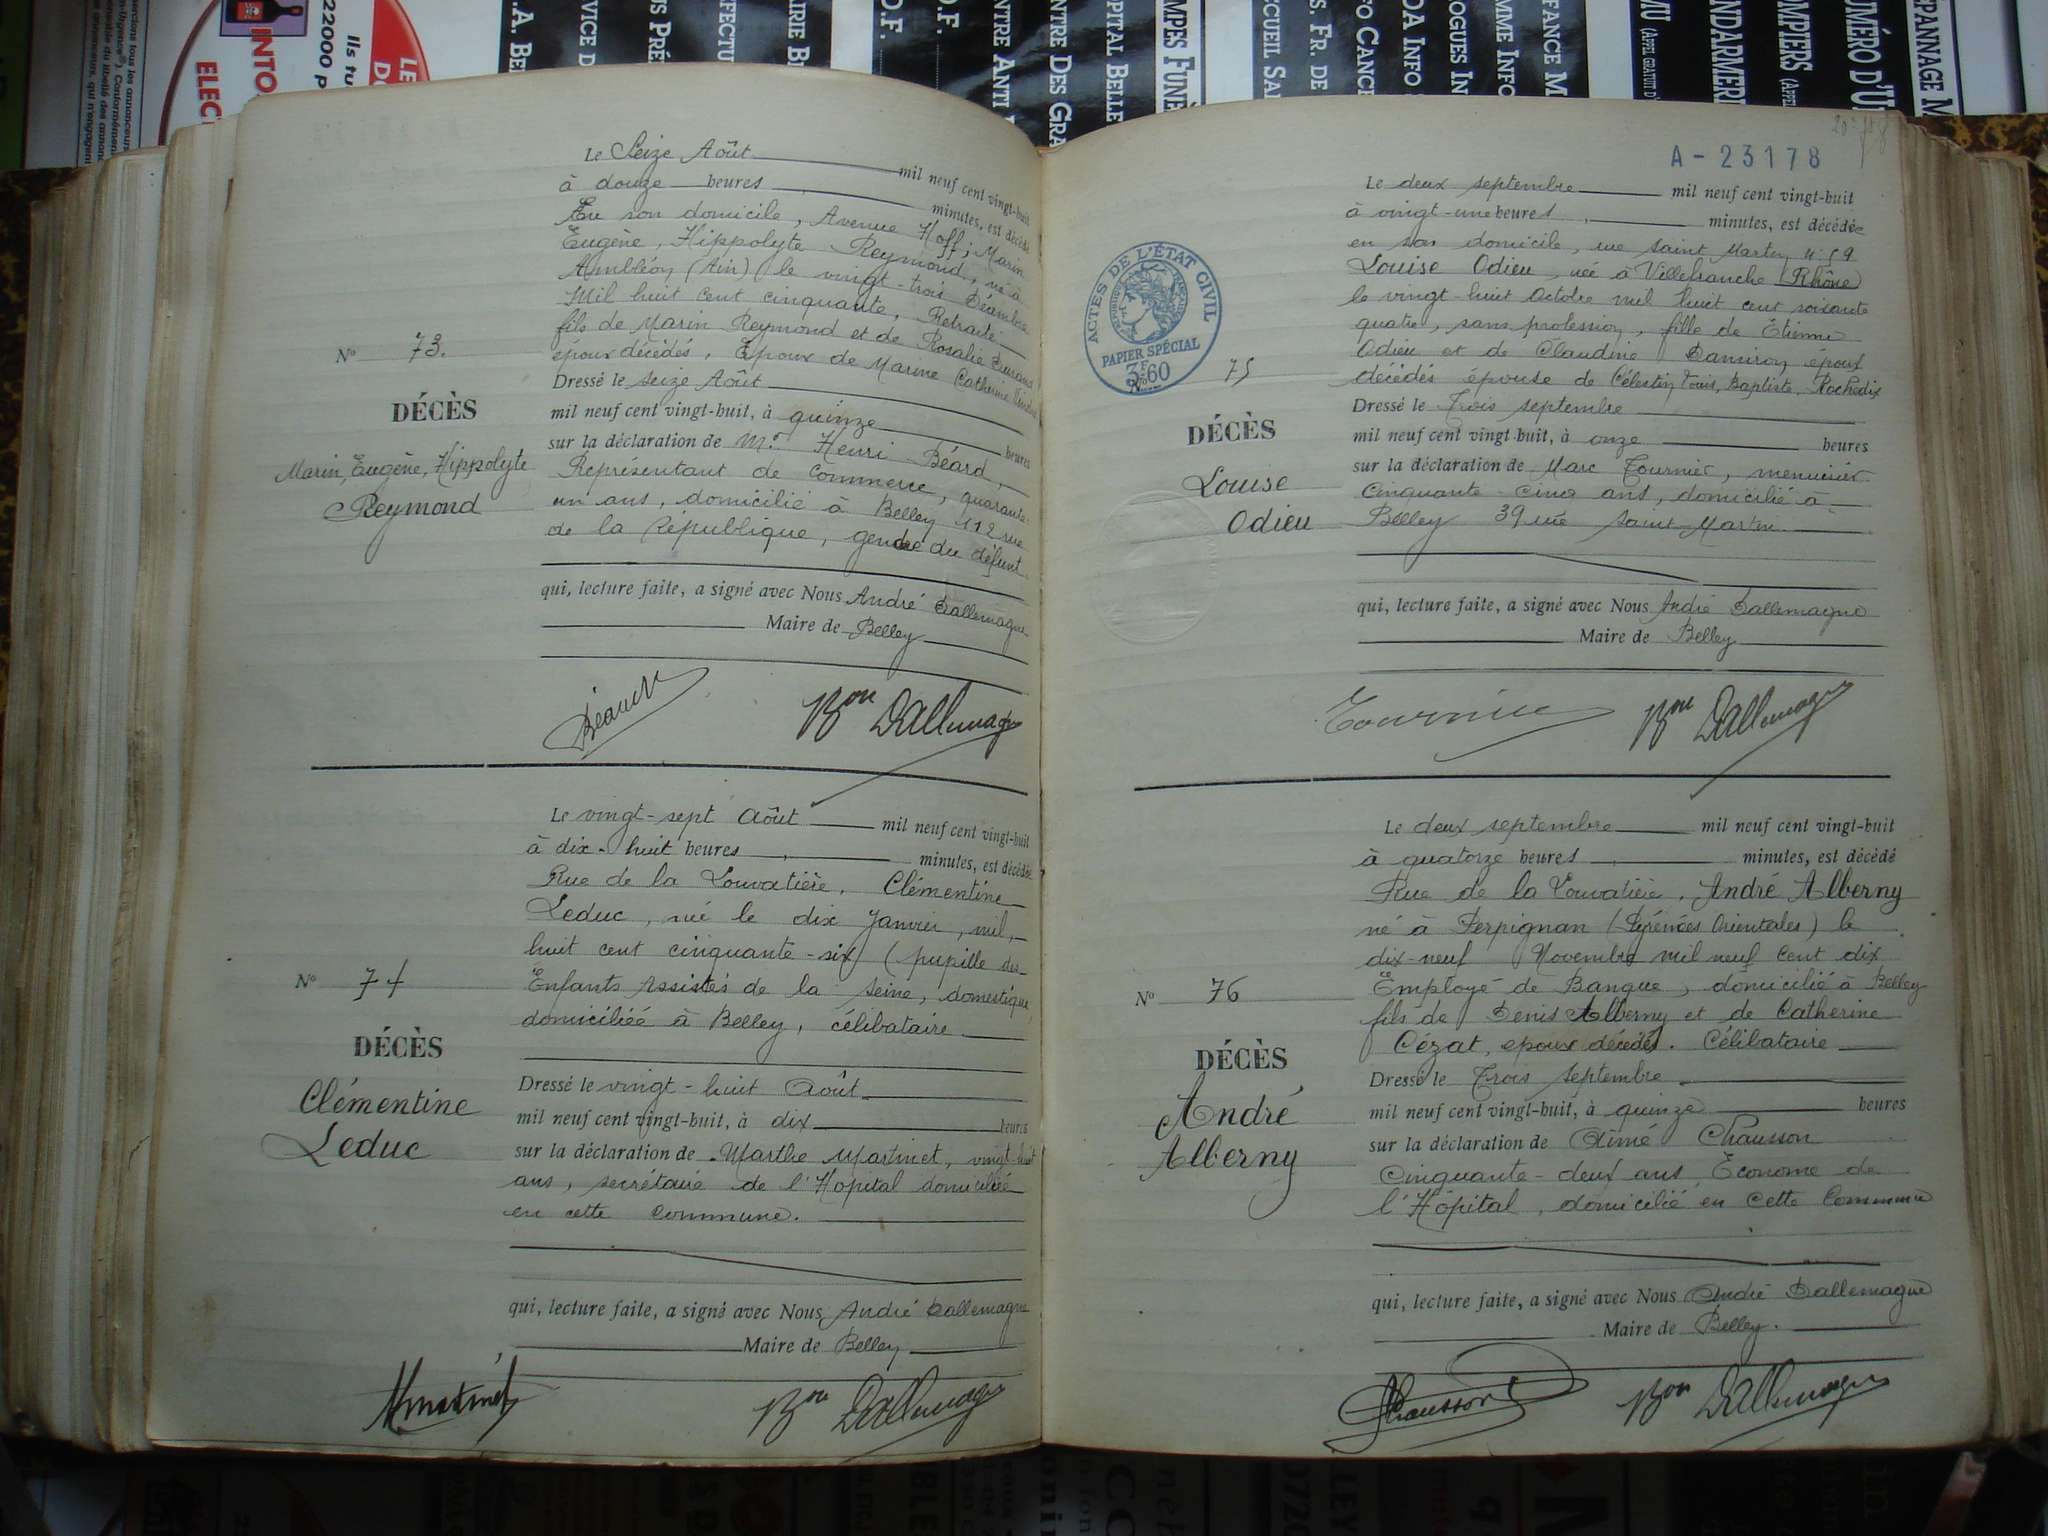 Le Seize Août mil neuf cent vingt-huit
à douze heures minutes, est décédé
En son domicile, Avenue Hoff; Marin
Eugène, Hippolyte Reymond, né à
Ambléon (Ain) le vingt-trois Décembre
Mil huit cent cinquante, Retraité
fils de Marin Reymond et de Rosalie Durand
époux décédés. Epoux de Marine Catherine
Dressé le seize Août
mil neuf cent vingt-huit, à quinze heures
sur la déclaration de Mr Henri Béard,
Représentant de Commerce, quarante
un ans, domicilié à Belley 112 rue
de la République, gendre du défunt
qui, lecture faite, a signé avec Nous André Dallemagne
Maire de Belley
No 73.
DÉCÈS
Marin, Eugène, Hippolyte
Reymond
Béard
Bon Dallemagne
Le vingt-sept Août mil neuf cent vingt-huit
à dix-huit heures minutes, est décédée
Rue de la Louvatière, Clémentine
Leduc, née le dix Janvier, mil
huit cent cinquante-six (pupille des
Enfants Assistés de la Seine, domestique
domiciliée à Belley, célibataire
Dressé le vingt-huit Août
mil neuf cent vingt-huit, à dix heures
sur la déclaration de Marthe Martinet, vingt-huit
ans, secrétaire de l'Hôpital domiciliée
en cette commune.
qui, lecture faite, a signé avec Nous André Dallemagne
Maire de Belley
No 74
DÉCÈS
Clémentine
Leduc
Martinet
Bon Dallemagne
A-23178
Le deux septembre mil neuf cent vingt-huit
à vingt-une heures minutes, est décédée
en son domicile, rue saint Martin, n° 59
Louise Odieu, née à Villefranche (Rhône)
le vingt-huit Octobre mil huit cent soixante
quatre, sans profession, fille de Etienne
Odieu et de Claudine Damiron époux
décédés épouse de Célestin, Louis, Baptiste, Rochedix
Dressé le Trois septembre
mil neuf cent vingt-huit, à onze heures
sur la déclaration de Marc Tournier, menuisier
Cinquante-cinq ans, domicilié à
Belley 39 rue saint-Martin
qui, lecture faite, a signé avec Nous André Dallemagne
Maire de Belley
ACTES DE L'ÉTAT CIVIL
PAPIER SPÉCIAL
3F60
No 75
DÉCÈS
Louise
Odieu
Tournier
Bon Dallemagne
Le deux septembre mil neuf cent vingt-huit
à quatorze heures minutes, est décédé
Rue de la Louvatière, André Alberny
né à Perpignan (Pyrénées Orientales) le
dix-neuf Novembre mil neuf cent dix
Employé de Banque, domicilié à Belley
fils de Denis Alberny et de Catherine
Cézat, epoux décédés. Célibataire
Dressé le Trois septembre
mil neuf cent vingt-huit, à quinze heures
sur la déclaration de Aimé Chausson
Cinquante-deux ans, Econome de
l'Hôpital, domicilié en cette Commune
qui, lecture faite, a signé avec Nous André Dallemagne
Maire de Belley.
No 76
DÉCÈS
André
Alberny
Chausson
Bon Dallemagne